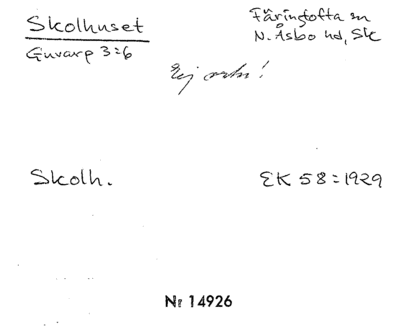 Skolhuset
Guvarp 3:6
Färingtofta sn
N. Åsbo hd, Sk
Ej ortn!
Skolh.
EK 58:1929
Nr 14926